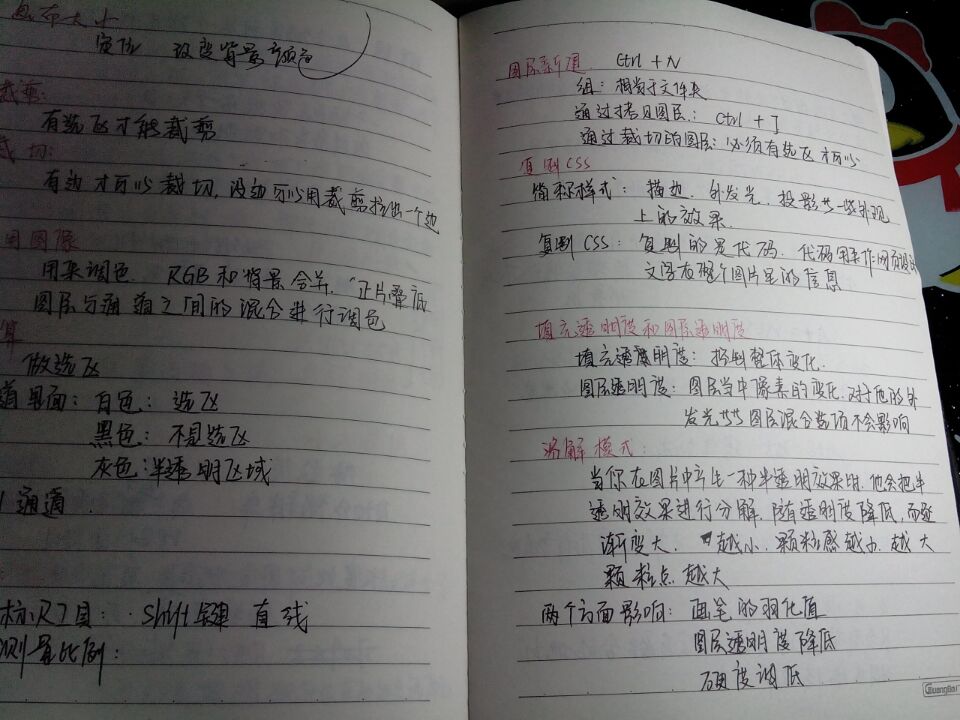 画布大小
定位 改变背景颜色
裁剪:
有选区才能裁剪
裁切:
有边才可以裁切,没边可以用裁剪拉出一个边
用图像
用来调色. RGB和背景合并.“正片叠底
图层与通道之间的混合进行调色
算
做选区
道里面:白色:选区
黑色:不是选区
灰色:半透明区域
通道
标尺工具: Shift键 直线
测量比例:
图层新建. Ctrl+N
组:相当于文件夹
通过拷贝图层: Ctrl+J
通过裁切的图层:必须有选区才可以
复制CSS
简称样式:描边.外发光.投影 一些外观
上的效果.
复制CSS:复制的是代码.代码用来作网页设计
文字在整个图片里的信息
填充透明度和图层透明度
填充透明度:控制整体变化.
图层透明度:图层当中像素的变化.对于他的外
发光 图层混合选项不会影响
溶解模式:
当你在图片中产生一种半透明效果时.他会把半
透明效果进行分解.随着透明度降低,而逐
渐变大. 越小.颗粒感越小.越大
颗粒点越大
两个方面影响:画笔的羽化值
图层透明度降低
硬度调低
GuangBo